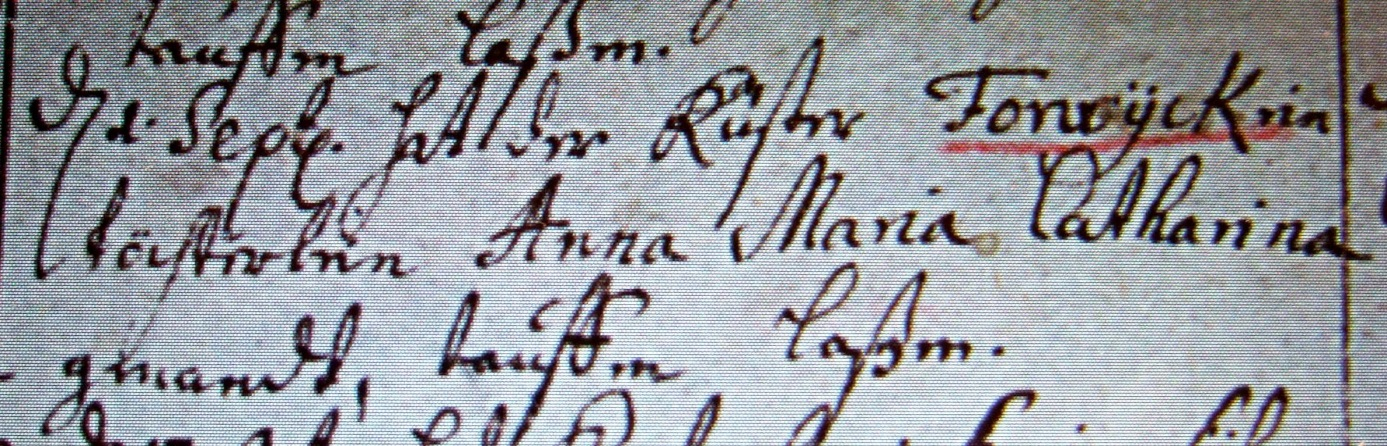 tauffen laßen.
d. 1. Sept. hat der Küster Forwÿck ein
töchterlein Anna Maria Catharina
genandt, tauffen laßen.